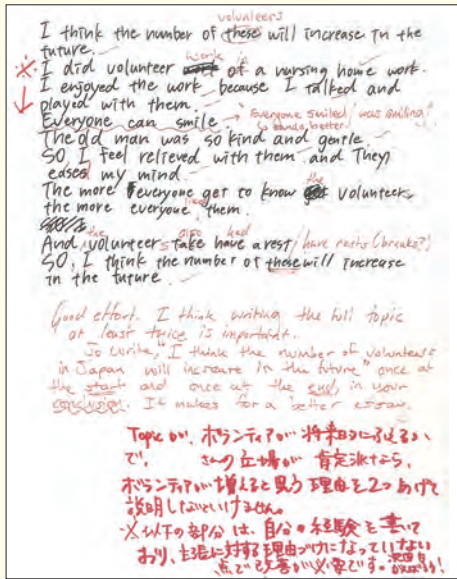 volunteers
I think the number of these will increase in the
future.
※ I did volunteer work of a nursing home work.
I enjoyed the work because I talked and
played with them.
Everyone can smile → "Everyone smiled / was smiling"
sounds better
The old man was so kind and gentle
SO, I feel relieved with them and They
eased my mind.
The more everyone get to know the volunteers
the more everyone liked them.
And, the volunteers also take have had a rest / have rests (breaks?)
SO, I think the number of these will increase
in the future.
Good effort. I think writing the full topic
at least twice is important.
So write, "I think the number of volunteers
in Japan will increase in the future" once at
the start and once at the end, in your
conclusion. It makes for a better essay.
Topicが、ボランティアが将来的にふえるか
で、 さんの立場が肯定派なら、
ボランティアが増えると思う理由を2つあげて
説明しないといけません。
※以下の部分は、自分の経験を書いて
おり、主張に対する理由づけになっていない
点で改善が必要です。